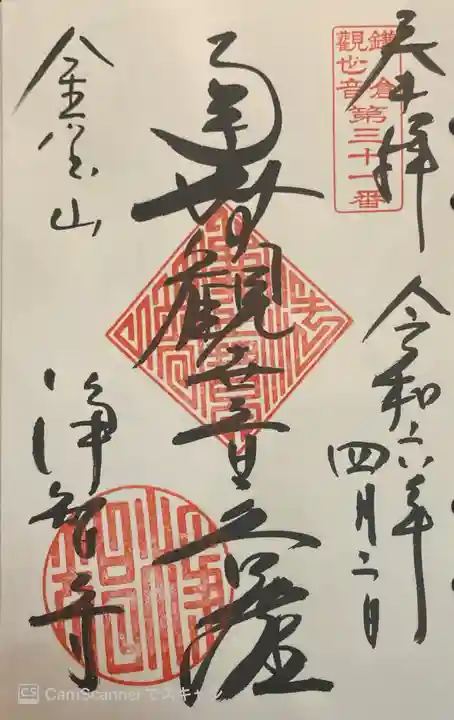 奉拝
令和六年
四月二日
鎌倉
觀世音
第三十一番
南無觀世音菩薩
金宝山
浄智寺
CS CamScannerでスキャン